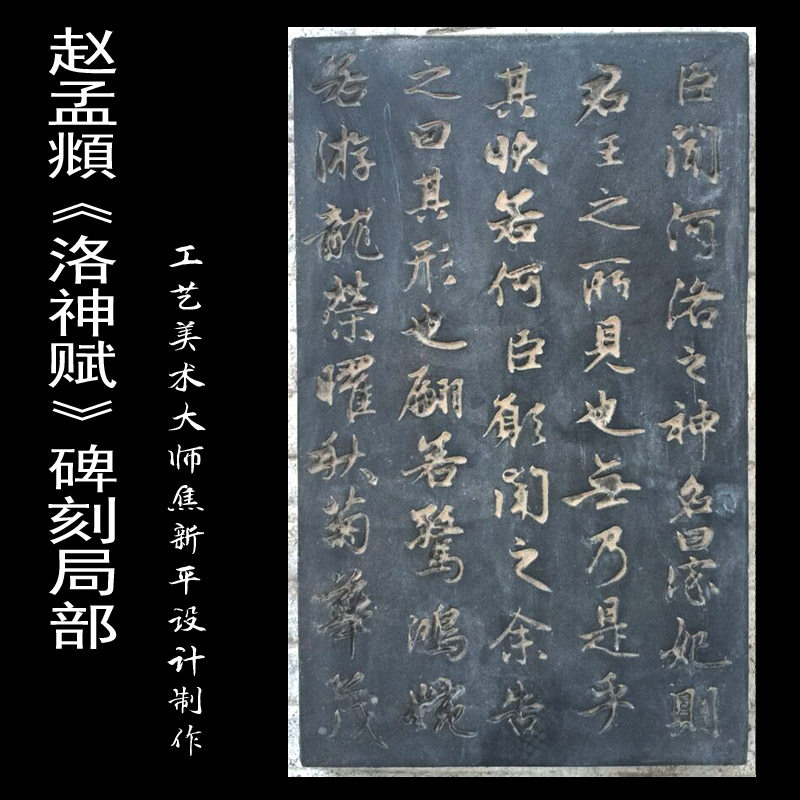 赵孟頫《洛神赋》碑刻局部
工艺美术大师焦新平设计制作
臣聞河洛之神名曰宓妃則
君王之所見也無乃是乎
其狀若何臣願聞之余告
之曰其形也翩若驚鴻婉
若游龍榮曜秋菊華茂